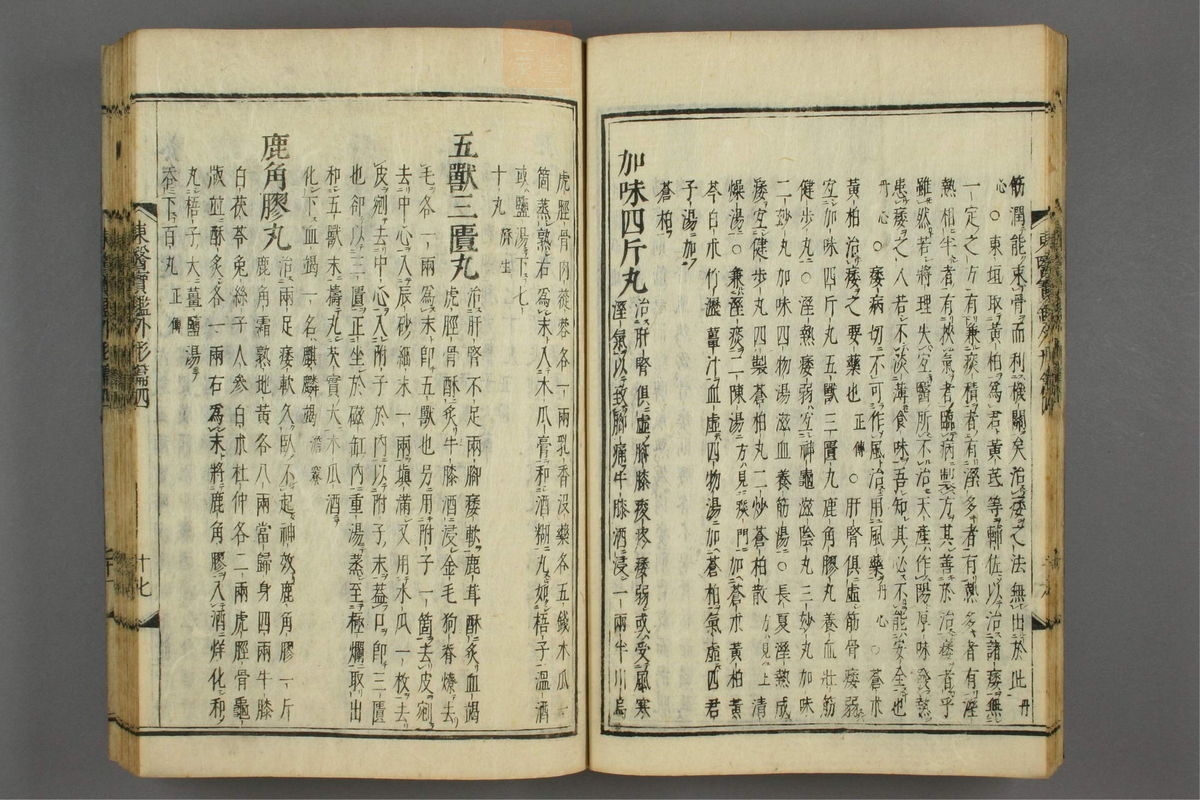 筋潤能束骨而利機關矣治痿之法無出於此丹
心○東垣取黃柏爲君黃芪等輔佐以治諸痿無
一定之方有兼痰積者有濕多者有熱多者有濕
熱相半者有挾氣者臨病製方其善於治痿者乎
雖然若將理失宜醫所不治天產作陽厚味發熱
患痿之人若不淡薄食味吾知其必不能安全也
丹心○痿病切不可作風治用風藥丹心○蒼朮
黃柏治痿之要藥也正傳○肝腎俱虛筋骨痿弱
宜加味四斤丸五獸三匱丸鹿角膠丸養血壯筋
健步丸○濕熱痿弱宜神龜滋陰丸三妙丸加味
二妙丸加味四物湯滋血養筋湯○長夏濕熱成
痿宜健步丸四製蒼柏丸二炒蒼柏散方見上清
燥湯○兼濕痰二陳湯方見痰門加蒼朮黃柏黃
芩白朮竹瀝薑汁血虛四物湯加蒼柏氣虛四君
子湯加
蒼柏
加味四斤丸治肝腎俱虛脚膝痠疼痿弱或受風寒
濕氣以致脚痛牛膝酒浸一兩半川烏
虎脛骨肉蓯蓉各一兩乳香沒藥各五錢木瓜一
箇蒸熟右爲末入木瓜膏和酒糊丸如梧子溫酒
或鹽湯下七
十丸濟生
五獸三匱丸治肝腎不足兩脚痿軟鹿茸酥灸血竭
虎脛骨酥灸牛膝酒浸金毛狗脊燎去
毛各一兩爲末卽五獸也另用附子一箇去皮剜
去中心入辰砂細末一兩塡滿又用木瓜一枚去
皮剜去中心入附子於內以附子末蓋口卽三匱
也却以三匱正坐於磁缸內重湯蒸至極爛取出
和五獸末擣丸芡實大木瓜酒
化下血竭一名麒麟竭澹寮
鹿角膠丸治兩足痿軟久臥不起神效鹿角膠一斤
鹿角霜熟地黃各八兩當歸身四兩牛膝
白茯苓兔絲子人參白朮杜仲各二兩虎脛骨龜
版並酥灸各一兩右爲末將鹿角膠入酒烊化和
丸梧子大薑鹽湯
呑下百丸正傳
東醫寶鑑外形篇四
十七